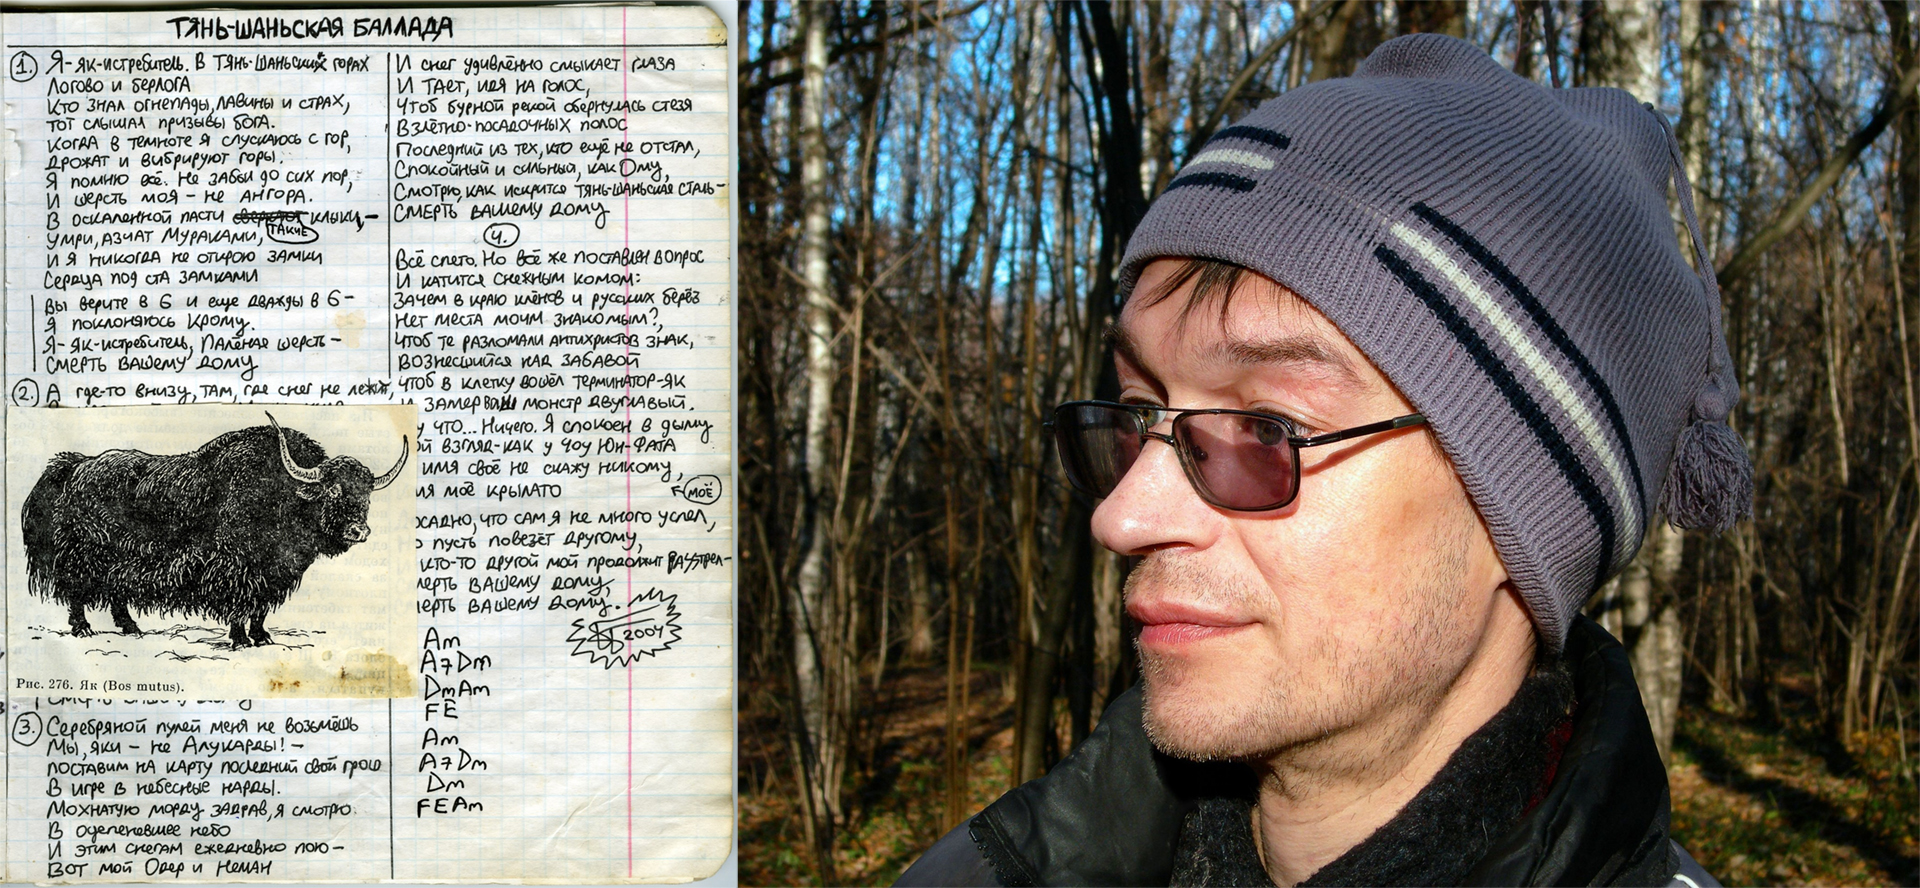 ТЯНЬ-ШАНЬСКАЯ БАЛЛАДА
1. Я-як-истребитель. В Тянь-Шаньских горах
Логово и берлога
Кто знал огнепады, лавины и страх,
тот слышал призывы бога.
Когда в темноте я спускаюсь с гор,
Дрожат и вибрируют горы,
Я помню всё. Не забыл до сих пор,
И шерсть моя - не ангора.
В оскаленной пасти клыки, -
Умри, азиат Мураками, такие
И я никогда не открою замки
Сердца под ста замками
Вы верите в 6 и еще дважды в 6 -
Я поклоняюсь Крому.
Я-як-истребитель, паленая шерсть -
Смерть вашему дому
2. А где-то внизу, там, где снег не лежит,
Рис. 276. Як (Bos mutus).
3. Серебряной пулей меня не возьмёшь
Мы, яки - не Алукарды! -
поставим на карту последний свой грош
В игре в небесные нарды.
Мохнатую морду задрав, я смотрю
В оцепеневшее небо
И этим снегам ежедневно пою -
Вот мой Одер и Неман
И снег удивлённо смыкает глаза
И тает, идя на голос,
Чтоб бурной рекой обернулась стезя
Взлётно-посадочных полос
Последний из тех, кто ещё не отстал,
Спокойный и сильный, как Ому,
Смотрю, как искрится тянь-шаньская сталь -
Смерть вашему дому
4.
Всё спето. Но всё же поставлен вопрос
И катится снежным комом:
Зачем в краю клёнов и русских берёз
Нет места моим знакомым?,
Чтоб те разломали антихристов знак,
Вознесшийся над забавой
Чтоб в клетку вошёл терминатор-як
И замер ваш монстр двуглавый.
у что... Ничего. Я спокоен в дыму
ой взгляд-как у Чоу Юн-Фата
имя своё не скажу никому,
мя моё крылато
моё
осадно, что сам я не много успел,
о пусть повезёт другому,
кто-то другой мой продолжит расстрел -
мерть вашему дому,
мерть вашему дому.
2004
Am
A7Dm
DmAm
FE
Am
A7Dm
Dm
FEAm